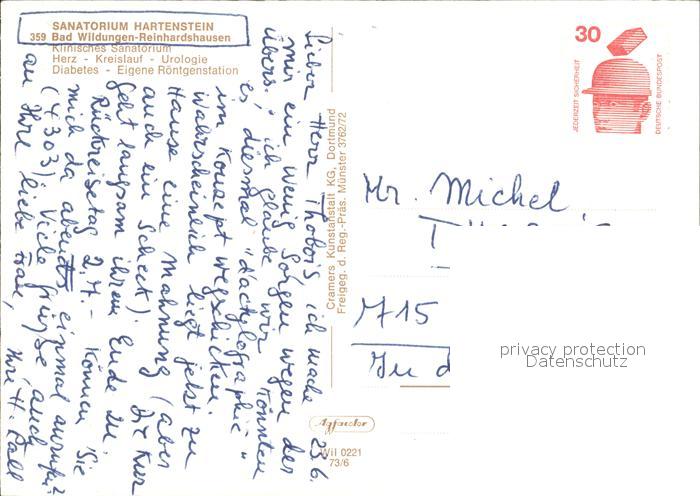 SANATORIUM HARTENSTEIN
359 Bad Wildungen-Reinhardshausen
Klinisches Sanatorium
Herz - Kreislauf - Urologie
Diabetes - Eigene Röntgenstation
23.6.
Lieber Herr Thobois ich mache
mir ein wenig Sorgen wegen der
Übers.; ich glaube wir könnten
es diesmal "dactylographié"
im Konzept wegschicken.
Wahrscheinlich liegt jetzt zu
Hause eine Mahnung (aber
auch ein Scheck). Die Kur
geht langsam ihrem Ende zu
Rückreisetag 2.7. - Können Sie
mich da abends einmal anrufen?
(4303) Viele Grüsse auch
an Ihre liebe Frau, Ihr H.
Cramers Kunstanstalt KG, Dortmund
Freigeg. d. Reg.-Präs. Münster 3762/72
Agfacolor
Wil 0221
73/6
30
JEDERZEIT SICHERHEIT
DEUTSCHE BUNDESPOST
Mr. Michel
M15
privacy protection
Datenschutz